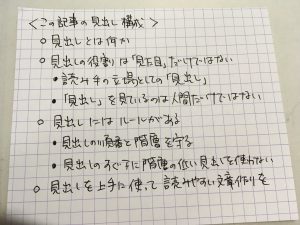 <この記事の見出し構成>
○ 見出しとは何か
○ 見出しの役割は「見た目」だけではない
• 読み手の立場としての「見出し」
• 「見出し」を見ているのは人間だけではない
○ 見出しにはルールがある
• 見出しの順番と階層を守る
• 見出しのすぐ下に階層の低い見出しを使わない
○ 見出しを上手に使って読みやすい文章作りを